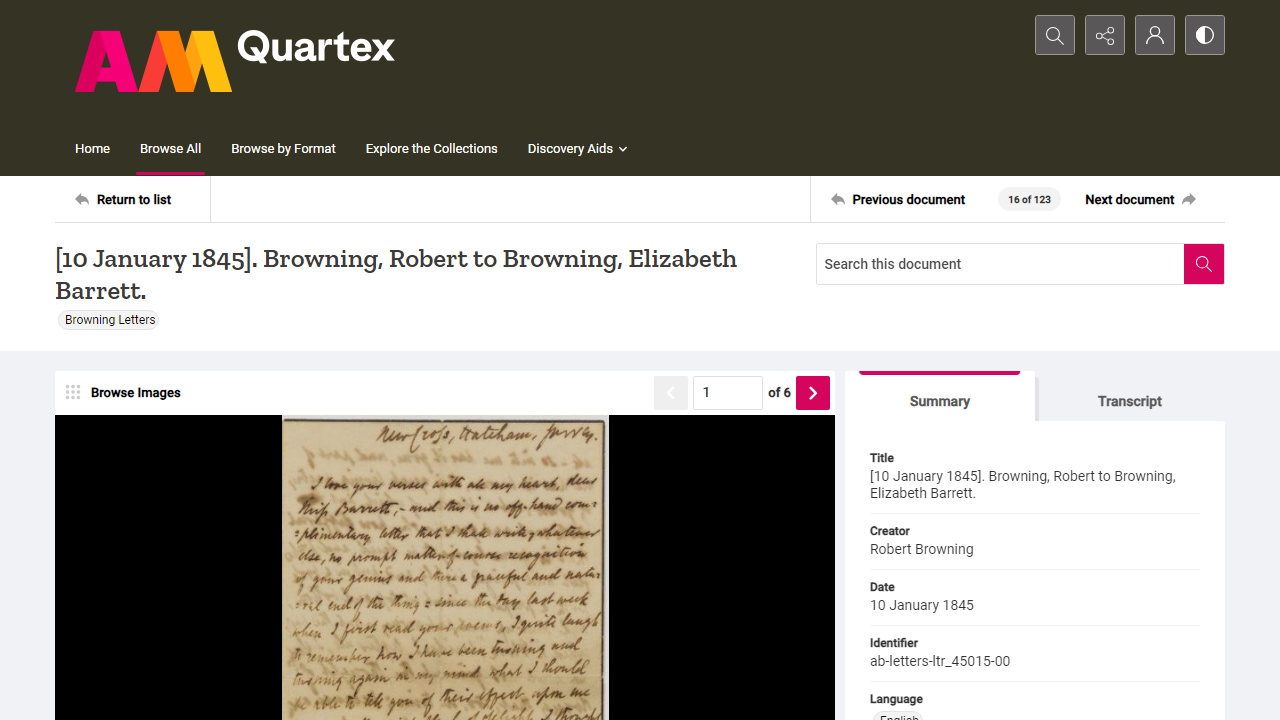 AM Quartex
Home
Browse All
Browse by Format
Explore the Collections
Discovery Aids
Return to list
Previous document
16 of 123
Next document
[10 January 1845]. Browning, Robert to Browning, Elizabeth
Barrett.
Browning Letters
Search this document
Browse Images
1
of 6
New Cross, Hatcham, Surrey.
I love your verses with all my heart, dear
Miss Barrett,- and this is no off-hand com-
=plimentary letter that I shall write,-whatever
else, no prompt matter-of-course recognition
of your genius and there a graceful and natu-
=ral end of the thing: since the day last week
when I first read your poems, I quite laugh
to remember how I have been turning and
turning again in my mind what I should
be able to tell you of their effect upon me
I thought
Summary
Transcript
Title
[10 January 1845]. Browning, Robert to Browning,
Elizabeth Barrett.
Creator
Robert Browning
Date
10 January 1845
Identifier
ab-letters-ltr_45015-00
Language
English